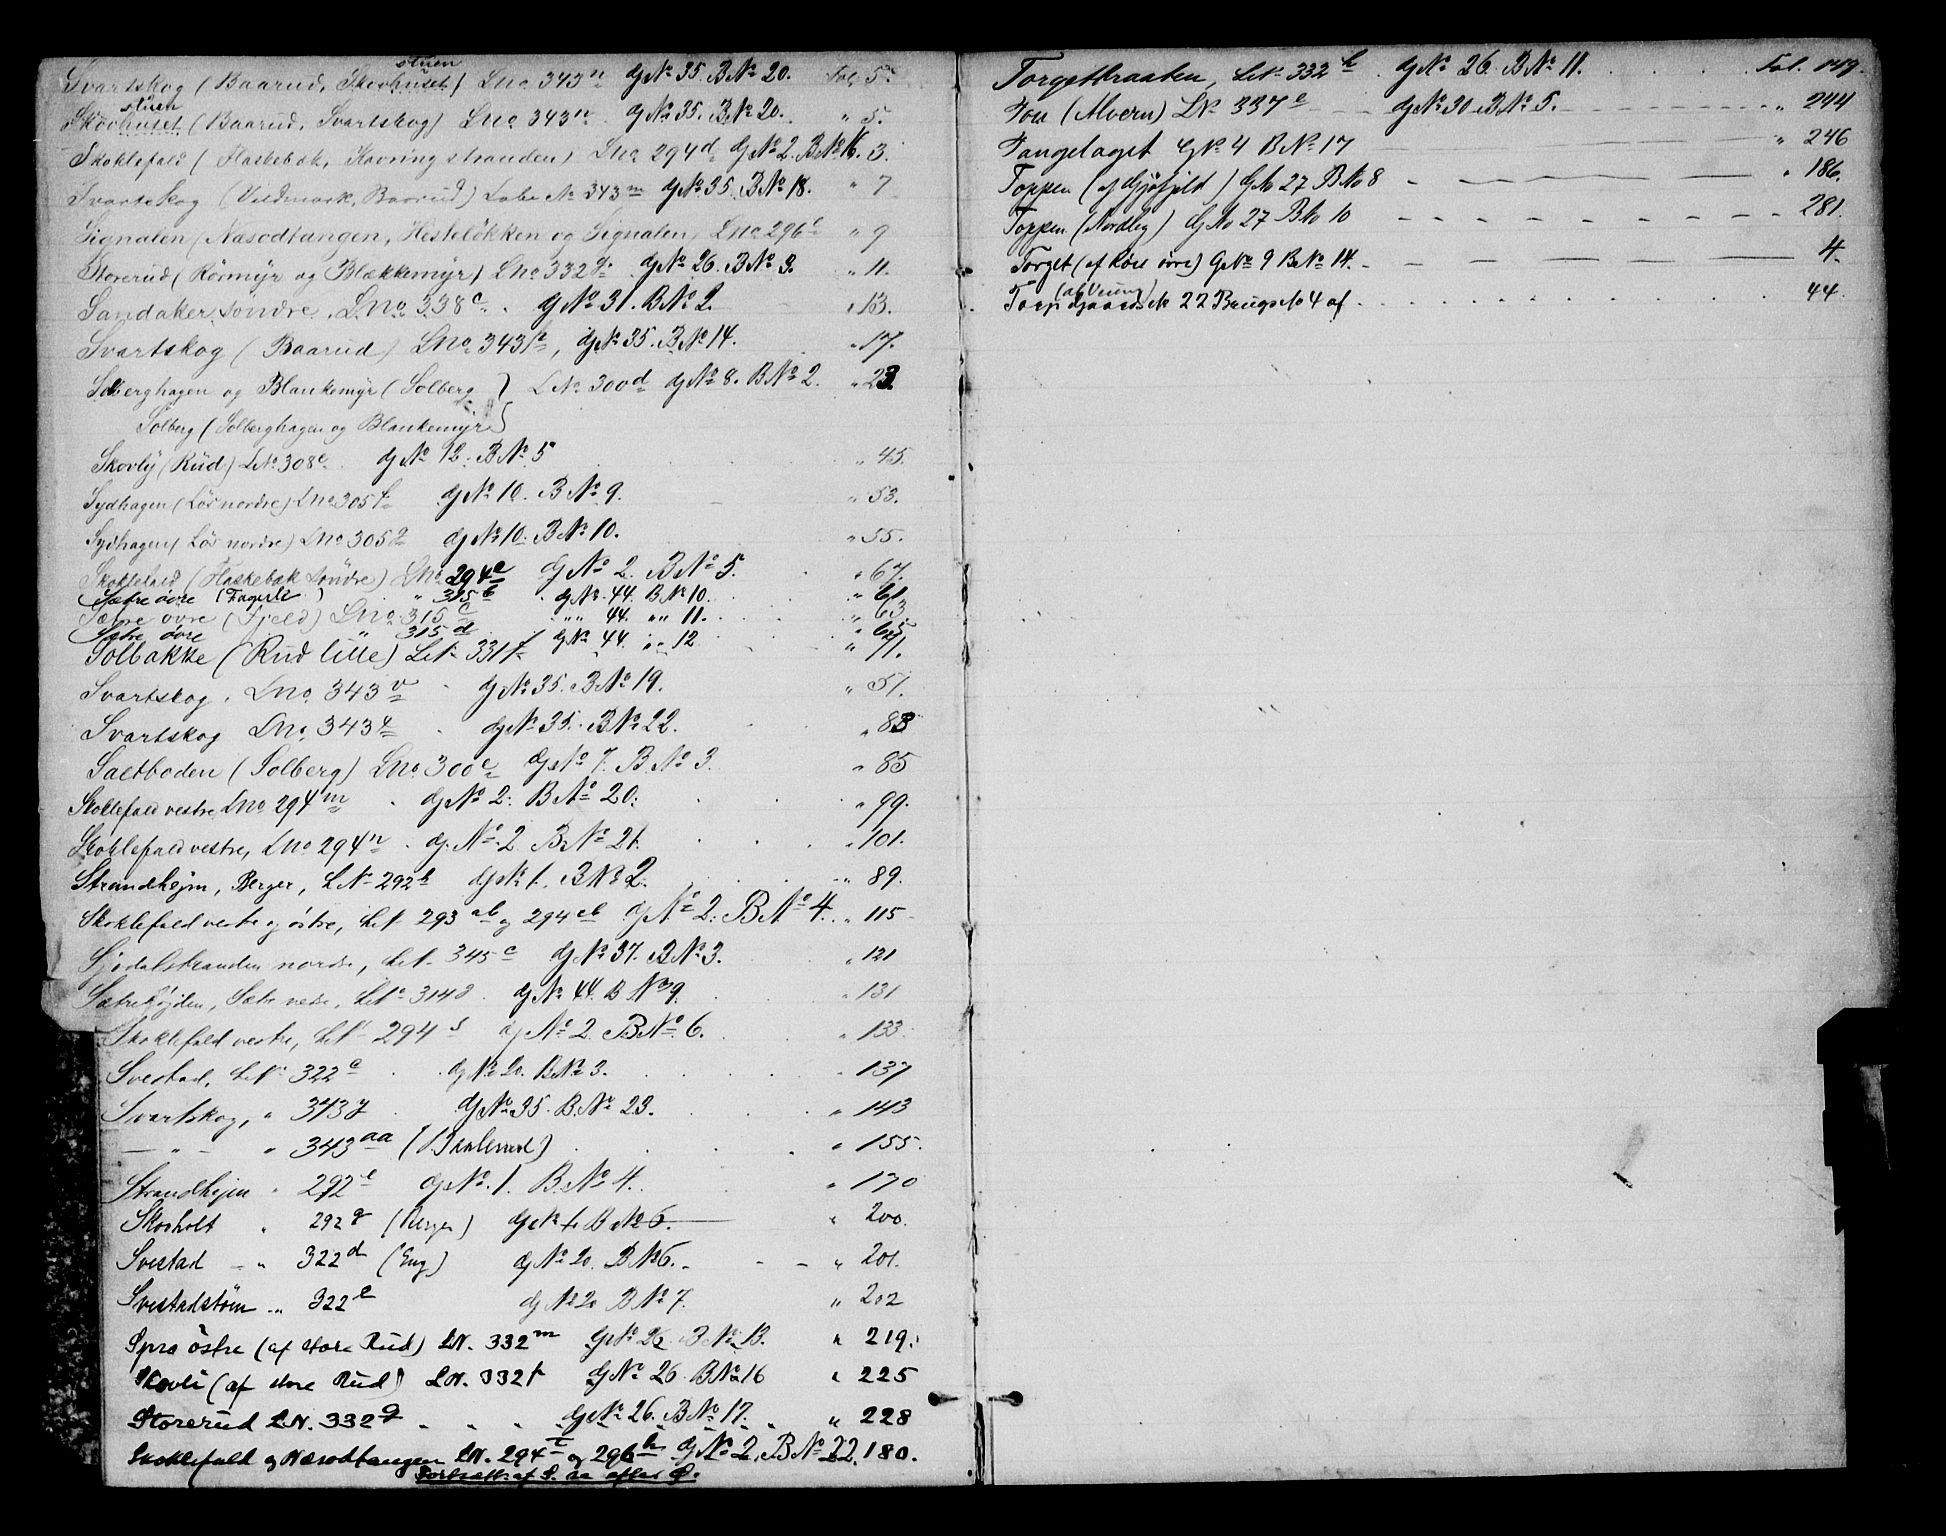 Svartskog (Baarud, Skovhuset) Lno 343n GNo 35. BNo 20. Fol. 5.
stuen
Skovhuset (Baarud, Svartskog) Lno 343n GNo 35. BNo 20. " 5.
stuen
Skoklefald (Flaskebæk, Havringstranden) Lno 294d GNo 2. BNo 16. 3.
Svartskog (Vildmark, Baarud) Løbe No 343m GNo 35. BNo 18. " 7
Signalen (Næsodtangen, Hesteløkken og Signalen) Lno 296c " 9
Storerud (Rörmyr og Blækkemyr) Lno 332g GNo 26. BNo 9. " 11.
Sandaker søndre. Lno 338c. GNo 31. BNo 2. " 13.
Svartskog (Baarud) Lno 343p, GNo 35. BNo 14. " 17.
Solberghagen og Blankemyr (Solberg) LNo 300d GNo 8. BNo 2. " 23
Solberg (Solberghagen og Blankemyr)
Skovly (Rud) LNo 308c. GNo 12. BNo 5 " 45.
Sydhagen (Løs nordre) Lno 305f GNo 10. BNo 9. " 53.
Sydhagen (Løs nordre) Lno 305g GNo 10. BNo 10. " 55.
Skoklefald (Flaskebæk søndre) Lno 294e GNo 2. BNo 5. " 67.
Sætre øvre (Fagerli) " 315b GNo 44. BNo 10. " 61
Sætre øvre (Fjeld) Lno 315c " " 44. " " 11. " 63
Sætre øvre " 315d GNo 44. " " 12 " 65
Solbakke (Rud lille) LNo 331f " 71.
Svartskog. Lno 343v GNo 35. BNo 19. " 51.
Svartskog Lno 343x GNo 35. BNo 22. " 83
Saltboden (Solberg) Lno 300e GNo 7. BNo 3. " 85
Skoklefald vestre, Lno 294m GNo 2. BNo 20. " 99.
Skoklefald vestre, Lno 294n GNo 2 BNo 21. " 101.
Strandhejm, Berger, LNo 292b GNo 1. BNo 2. " 89.
Skoklefald vestre og østre, LNo 293ab og 294ab GNo 2. BNo 4. " 115
Sjødalstranden nordre, LNo 345c GNo 37. BNo 3. " 121
Sætrehøjden, Sætre nedre, LNo 314d GNo 44. BNo 9. " 131
Skoklefald vestre, LNo 294s GNo 2. BNo 6. " 133.
Svestad, LNo 322c GNo 20. BNo 3. " 137
Svartskog, " 343y GNo 35. BNo 23. " 143
— " — " 343aa " 155.
Strandhejm " 292e GNo 1. BNo 4. " 170
Skovholt " 292g (Berger) GNo 1. BNo 6. " 200.
Svestad — " 322d (Eng) GNo 20. BNo 6. " 201.
Svestadstøm " 322e GNo 20 BNo 7. " 202
Spro östre (af store Rud) LN. 332m GNo 26 BNo 13. " 219.
Skovli (af store Rud) LN. 332p GNo 26 BNo 16 " 225
Storerud LN. 332q GNo 26. BNo 17. " 228
Skoklefald og Næsodtangen LN. 294t og 296h GNo 2. BNo 22. 180.
Fortsætt. af S. se efter Ø.
Torgetbraaten, LNo 332h GNo 26 BNo 11. Fol. 149.
Tou (Alvern) LNo 337e GNo 30 BNo 5. " 244
Tangelaget GNo 4 BNo 17 " 246
Toppen (af Gjöfjeld) GNo 27 BNo 8 " 186.
Toppen (Nordlig) GNo 27 BNo 10 " 281.
Torget (af Röer övre) GNo 9 BNo 14. 4.
(af Veung)
Torp Gaardsno 22 Brugsno 4 af 44.